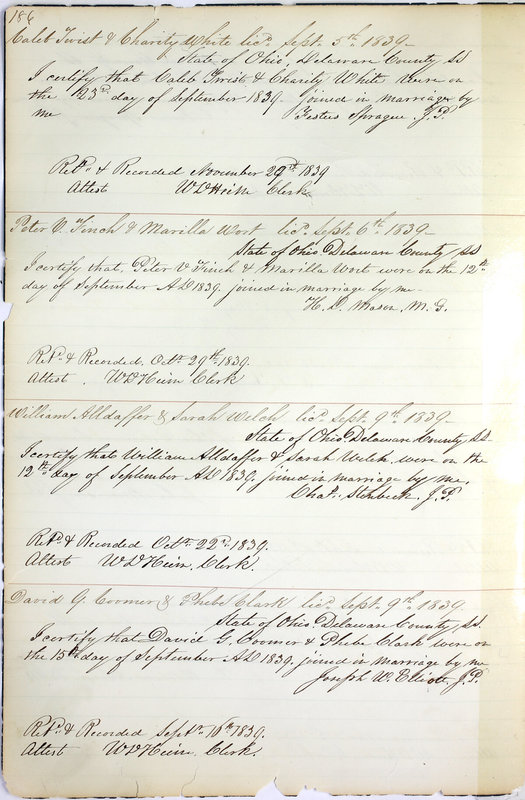 186
Caleb Twist & Charity White licd. Sept. 5th. 1839—
State of Ohio, Delaware County ss
I certify that Caleb Twist & Charity White were on
the 23d day of September 1839— joined in marriage by
me Festus Sprague J.P.
Retd. & Recorded November 22nd. 1839
Attest W D Heim Clerk
Peter V. Finch & Marilla Wort licd. Sept. 6th. 1839—
State of Ohio Delaware County ss
I certify that, Peter V Finch & Marilla Wort were on the 12th
day of September AD 1839. joined in marriage by me—
H. D. Mason. M. G.
Retd. & Recorded. Octr. 29th. 1839.
Attest. W D Heim Clerk
William Alldaffer & Sarah Welch licd. Sept. 9th. 1839—
State of Ohio Delaware County SS
I certify that William Alldaffer & Sarah Welch were on the
12th. day of September AD 1839. joined in marriage by me.
Chas. J.P.
Retd. & Recorded Octr. 22d. 1839.
Attest W D Heim. Clerk.
David G. Coomer & Phebe Clark licd. Sept. 9th. 1839.
State of Ohio Delaware County, ss.
I certify that David G. Coomer & Phebe Clark were on
the 15th day of September AD 1839. joined in marriage by me
Joseph W. Elliott, J.P.
Retd. & Recorded Septr. 16th 1839.
Attest W D Heim. Clerk.